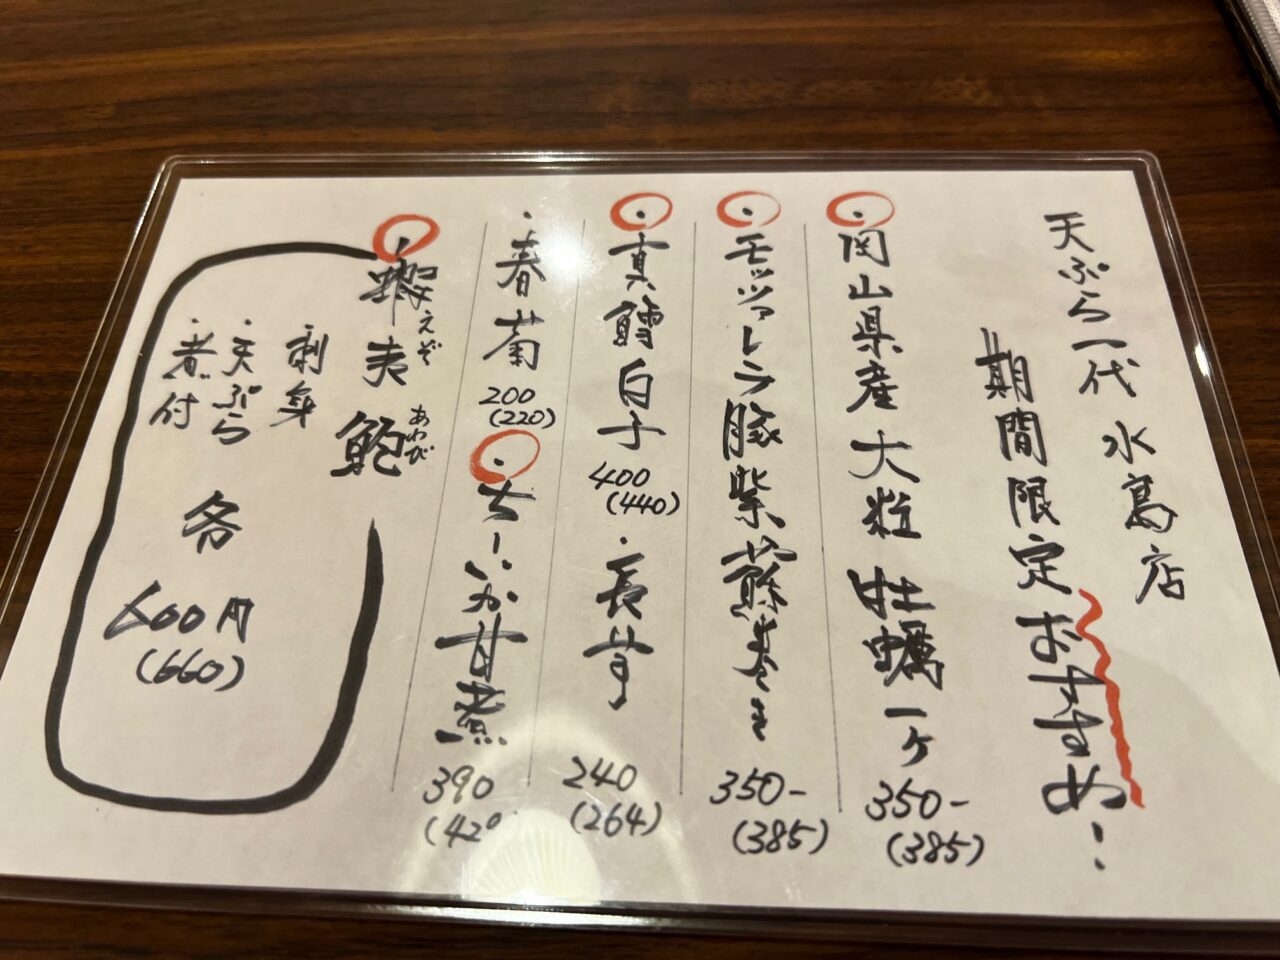 天ぷら一代 水島店
期間限定おすすめ!
・岡山県産大粒牡蠣一ヶ 350- (385)
・モッツァレラ豚紫蘇巻き 350- (385)
・真鱈白子 400 (440)
・長芋 240 (264)
・春菊 200 (220)
・ちーいか甘煮 390
・蝦夷鮑
えぞ あわび
・刺身
・天ぷら
・煮付
各
600円
(660)